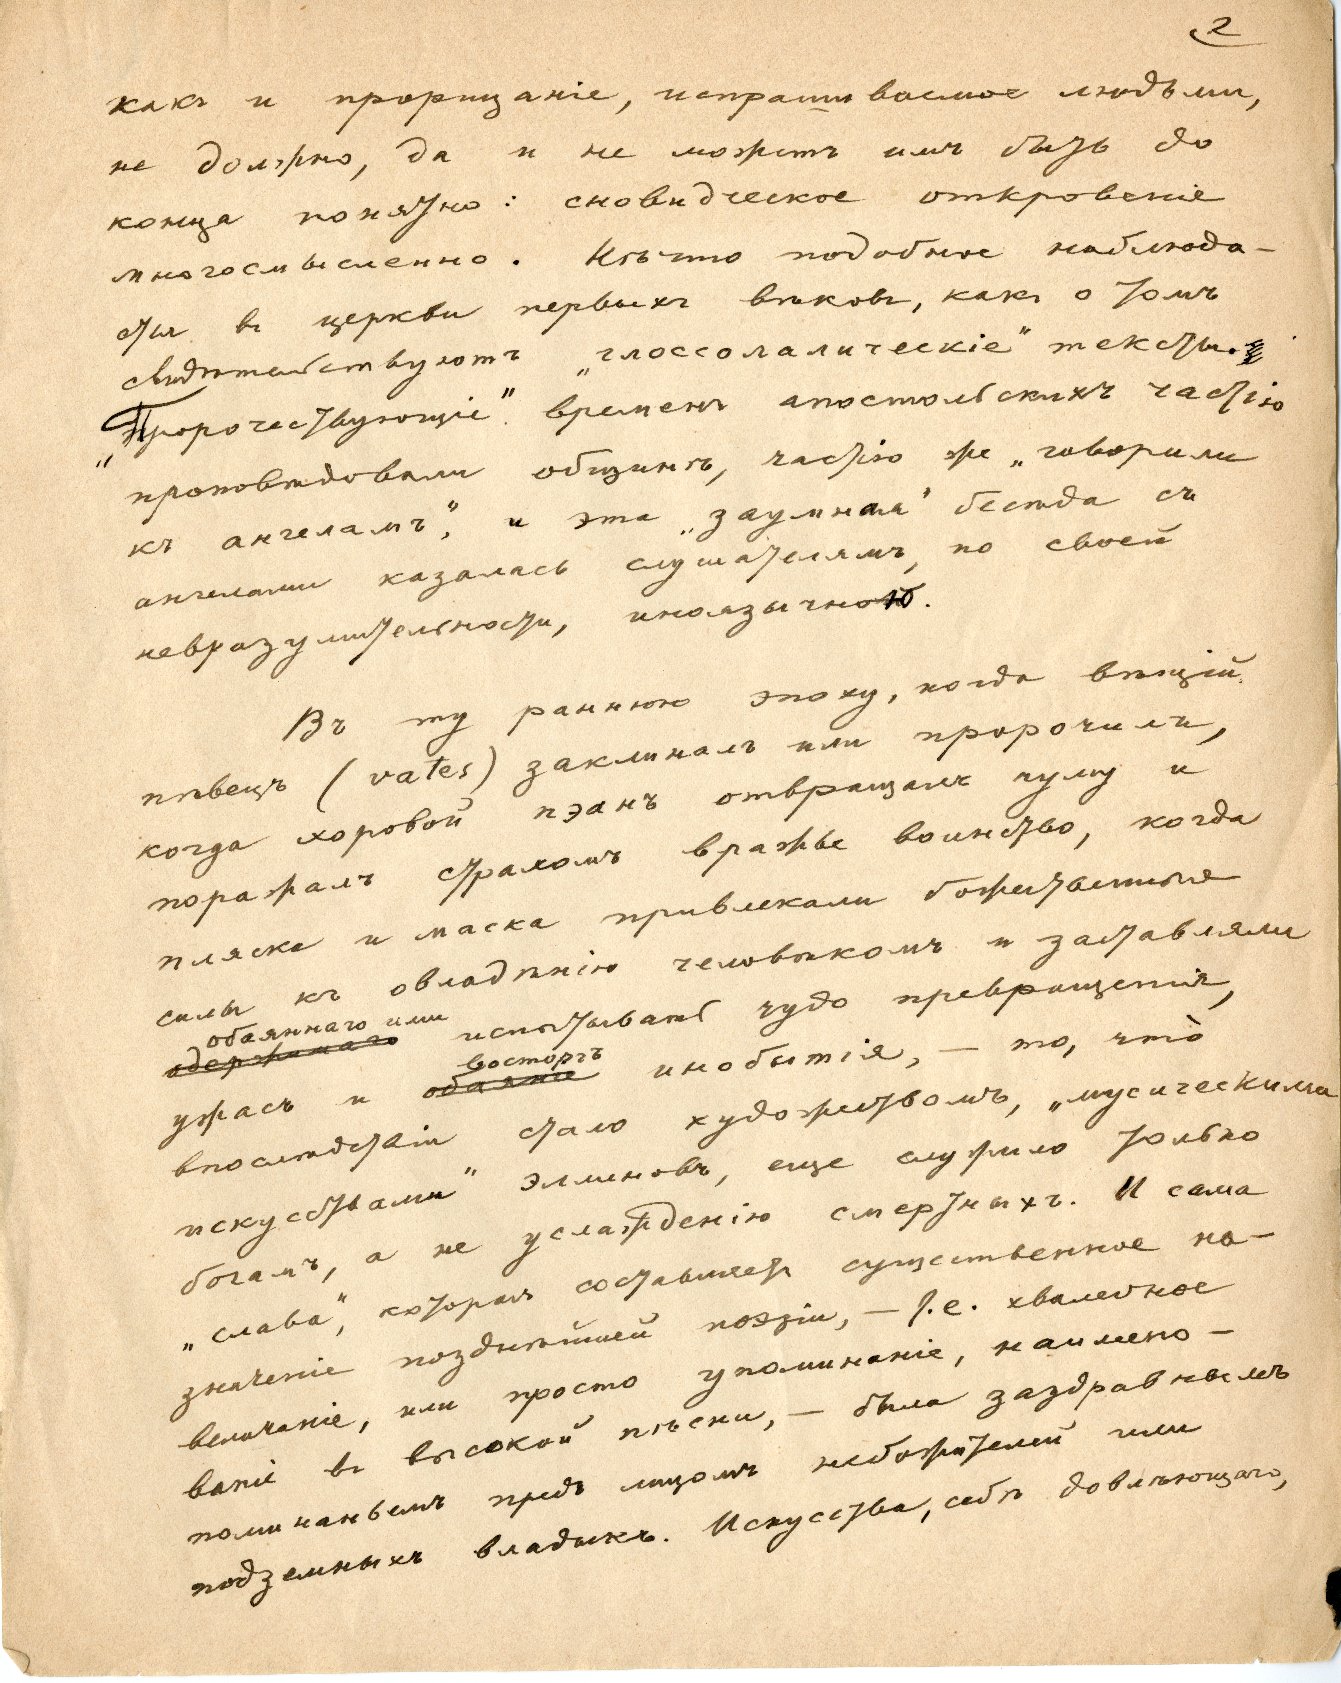 2
какъ и прорицаніе, испрашиваемое людьми,
не должно, да и не можетъ имъ быть до
конца понятно: сновидческое откровеніе
многосмысленно. Нѣчто подобное наблюда-
емъ въ церкви первыхъ вѣковъ, какъ о томъ
свидѣтельствуютъ „глоссолалическіе" тексты.
„Пророчествующіе" временъ апостольскихъ частію
проповѣдовали общинѣ, частію же „говорили
къ ангеламъ", и эта „заумная" бесѣда съ
ангелами казалась слушателямъ, по своей
невразумительности, иноязычною.
Въ ту раннюю эпоху, когда вѣщій
пѣвецъ (vates) заклиналъ или пророчилъ,
когда хоровой пэанъ отвращалъ чуму и
поражалъ страхомъ вражье воинство, когда
пляска и маска привлекали божественныя
силы къ овладѣнію человѣкомъ и заставляли
обаяннаго ими
одержимаго испытывать чудо превращенія,
восторгъ
ужасъ и обаяніе инобытія, — то, что
впослѣдствіи стало художествомъ, „мусическими
искусствами" эллиновъ, еще служило только
богамъ, а не услажденію смертныхъ. И сама
„слава", которая составляетъ существенное на-
значеніе позднѣйшей поэзіи, — т.е. хвалебное
величаніе, или просто упоминаніе, наимено-
ваніе въ высокой пѣсни, — была заздравнымъ
поминаньемъ предъ лицомъ небожителей или
подземныхъ владыкъ. Искусства, себѣ довлѣющаго,